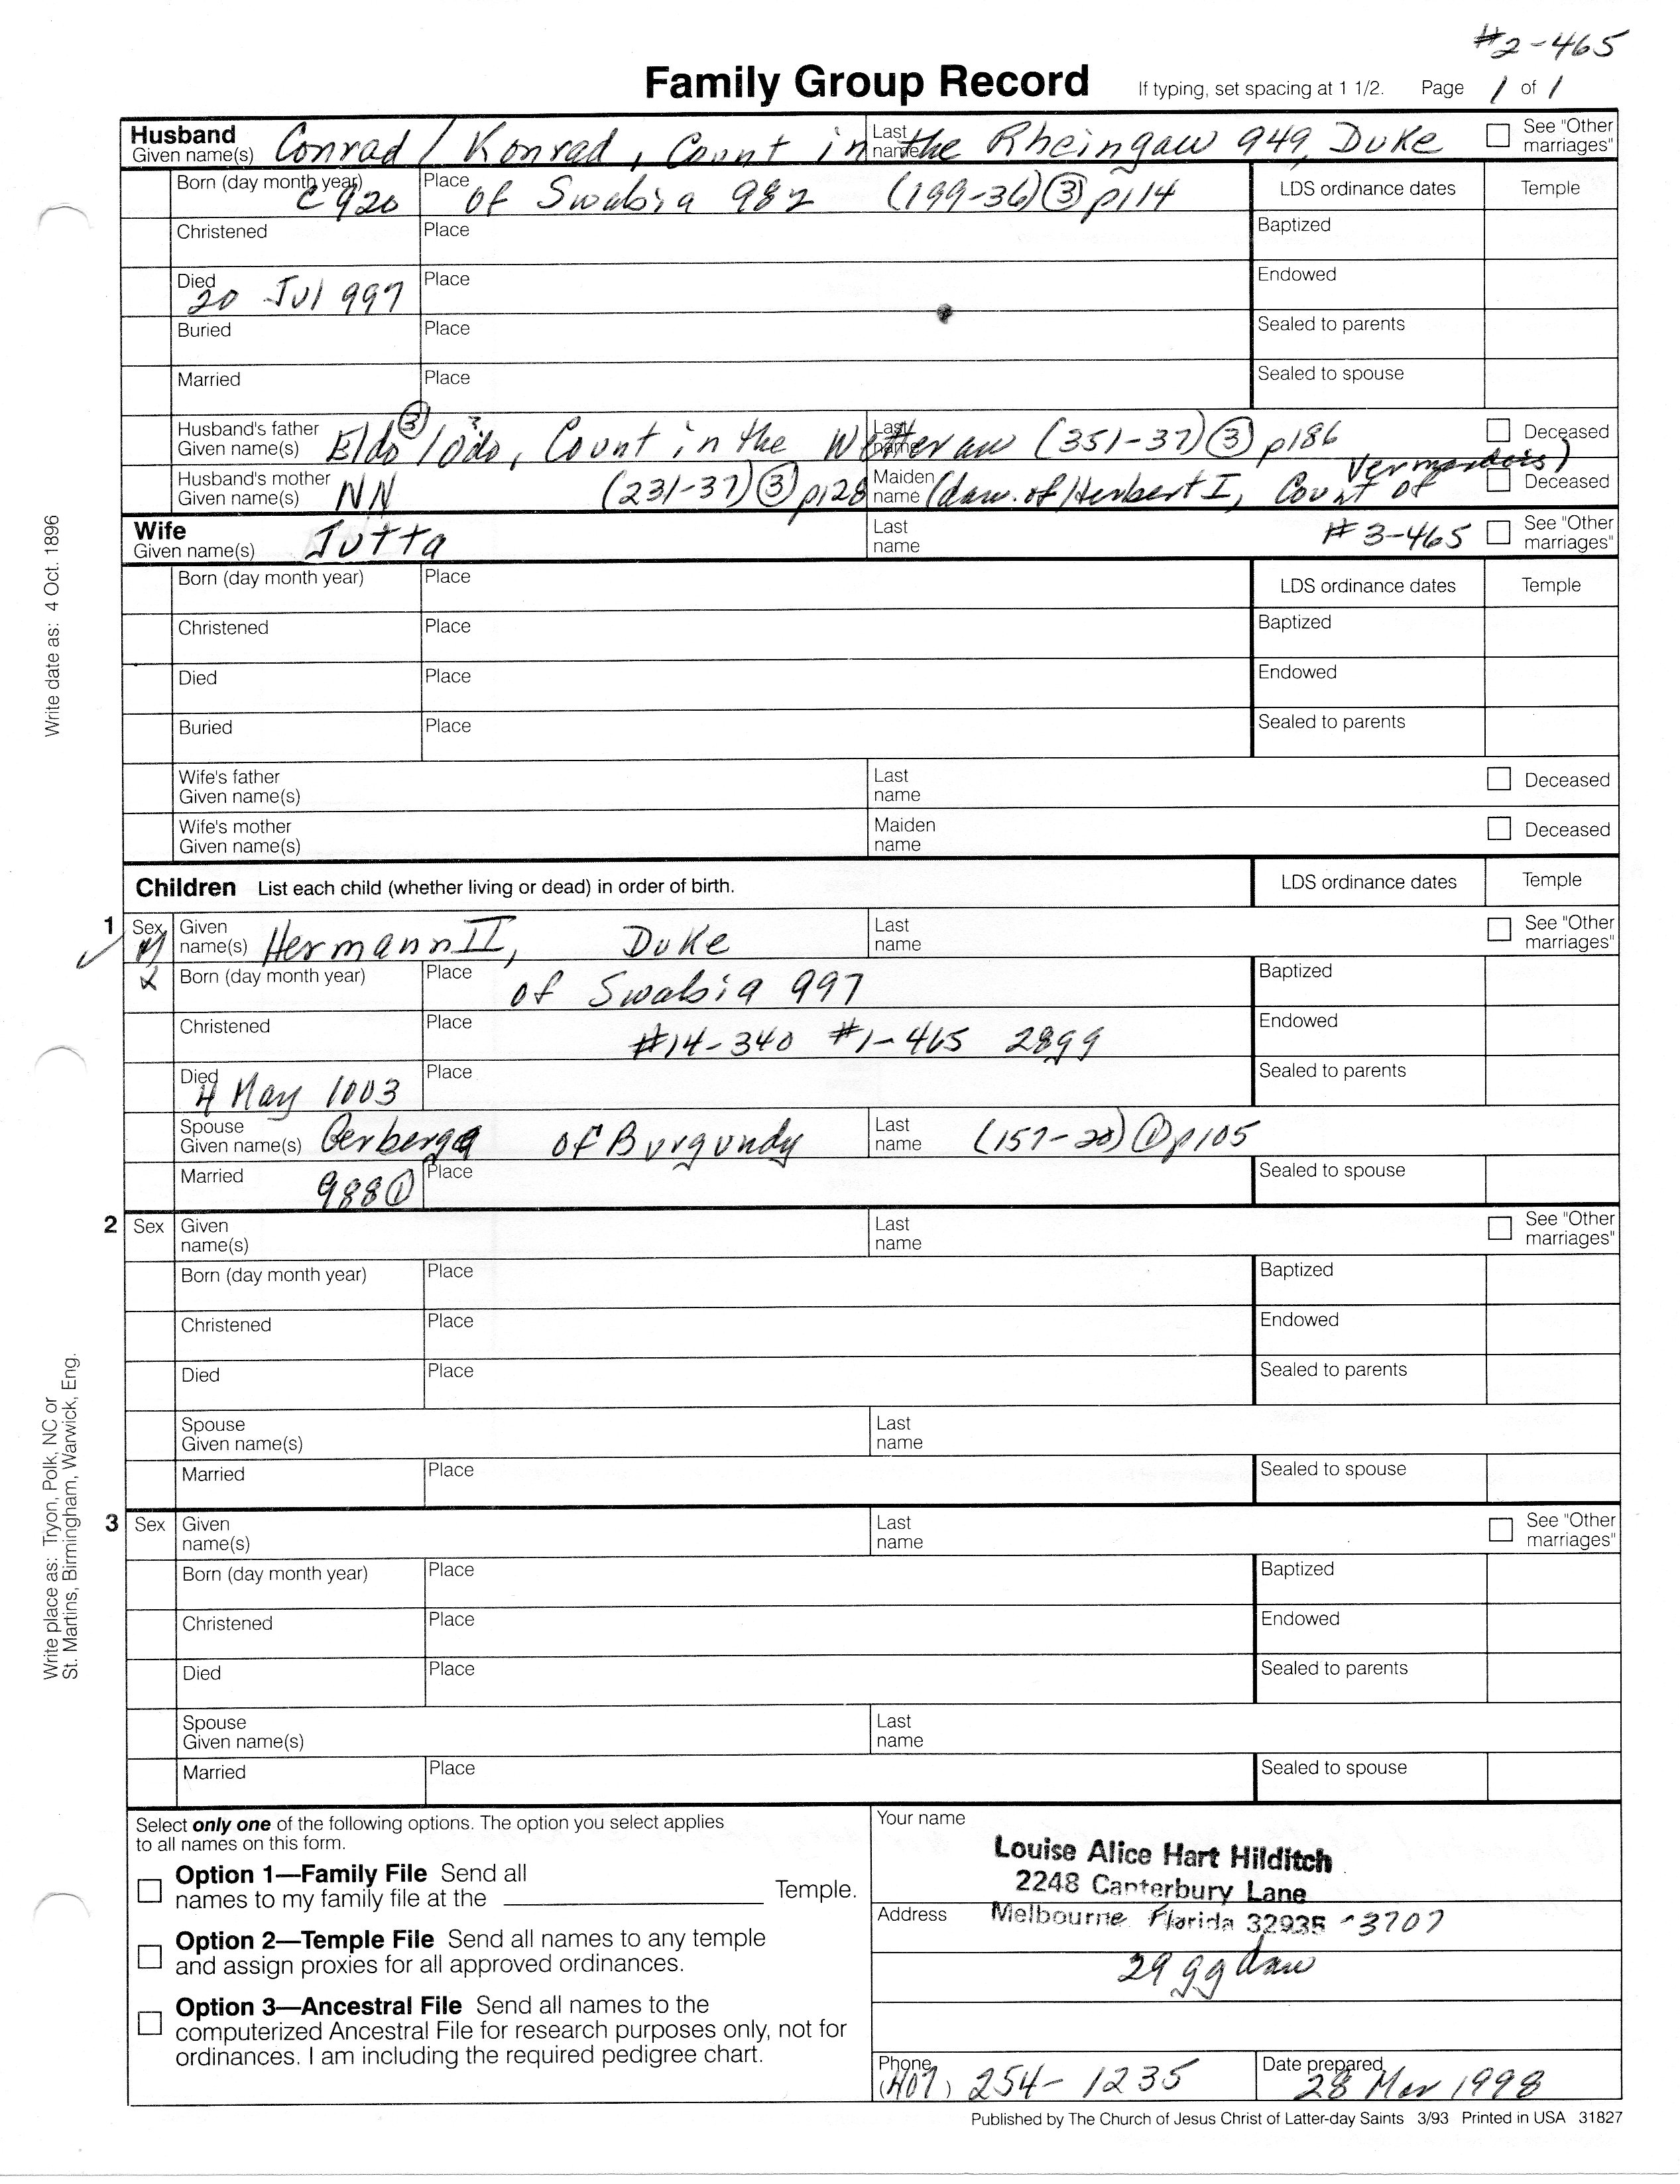 #2-465
Family Group Record If typing, set spacing at 1 1/2. Page 1 of 1
Husband Given name(s) Conrad / Konrad, Count in the Rheingaw 949, Duke Last name See "Other marriages"
Born (day month year) c 920 Place of Swabia 982 (199-36) ③ p114 LDS ordinance dates Temple
Christened Place Baptized
Died 20 Jul 997 Place Endowed
Buried Place Sealed to parents
Married Place Sealed to spouse
Husband's father Given name(s) Eldo ③ / Odo, Count in the Wetteraw Last name (351-37) ③ p186 Deceased
Husband's mother Given name(s) NN (231-37) ③ p128 Maiden name (daw. of Herbert I, Count of Vermandois) Deceased
Wife Given name(s) Jutta Last name #3-465 See "Other marriages"
Born (day month year) Place LDS ordinance dates Temple
Christened Place Baptized
Died Place Endowed
Buried Place Sealed to parents
Wife's father Given name(s) Last name Deceased
Wife's mother Given name(s) Maiden name Deceased
Children List each child (whether living or dead) in order of birth. LDS ordinance dates Temple
1 Sex M Given name(s) Hermann II, Duke Last name See "Other marriages"
Born (day month year) Place of Swabia 997 Baptized
Christened Place #14-340 #1-465 28gg Endowed
Died 4 May 1003 Place Sealed to parents
Spouse Given name(s) Gerberga of Burgundy Last name (157-20) ① p105
Married 988 ① Place Sealed to spouse
2 Sex Given name(s) Last name See "Other marriages"
Born (day month year) Place Baptized
Christened Place Endowed
Died Place Sealed to parents
Spouse Given name(s) Last name
Married Place Sealed to spouse
3 Sex Given name(s) Last name See "Other marriages"
Born (day month year) Place Baptized
Christened Place Endowed
Died Place Sealed to parents
Spouse Given name(s) Last name
Married Place Sealed to spouse
Select only one of the following options. The option you select applies
to all names on this form.
Option 1—Family File Send all
names to my family file at the Temple.
Option 2—Temple File Send all names to any temple
and assign proxies for all approved ordinances.
Option 3—Ancestral File Send all names to the
computerized Ancestral File for research purposes only, not for
ordinances. I am including the required pedigree chart.
Your name
Louise Alice Hart Hilditch
2248 Canterbury Lane
Address Melbourne Florida 32935 -3707
29 gg daw
Phone (407) 254-1235 Date prepared 28 Mar 1998
Published by The Church of Jesus Christ of Latter-day Saints 3/93 Printed in USA 31827
Write date as: 4 Oct. 1896
Write place as: Tryon, Polk, NC or
St. Martins, Birmingham, Warwick, Eng.